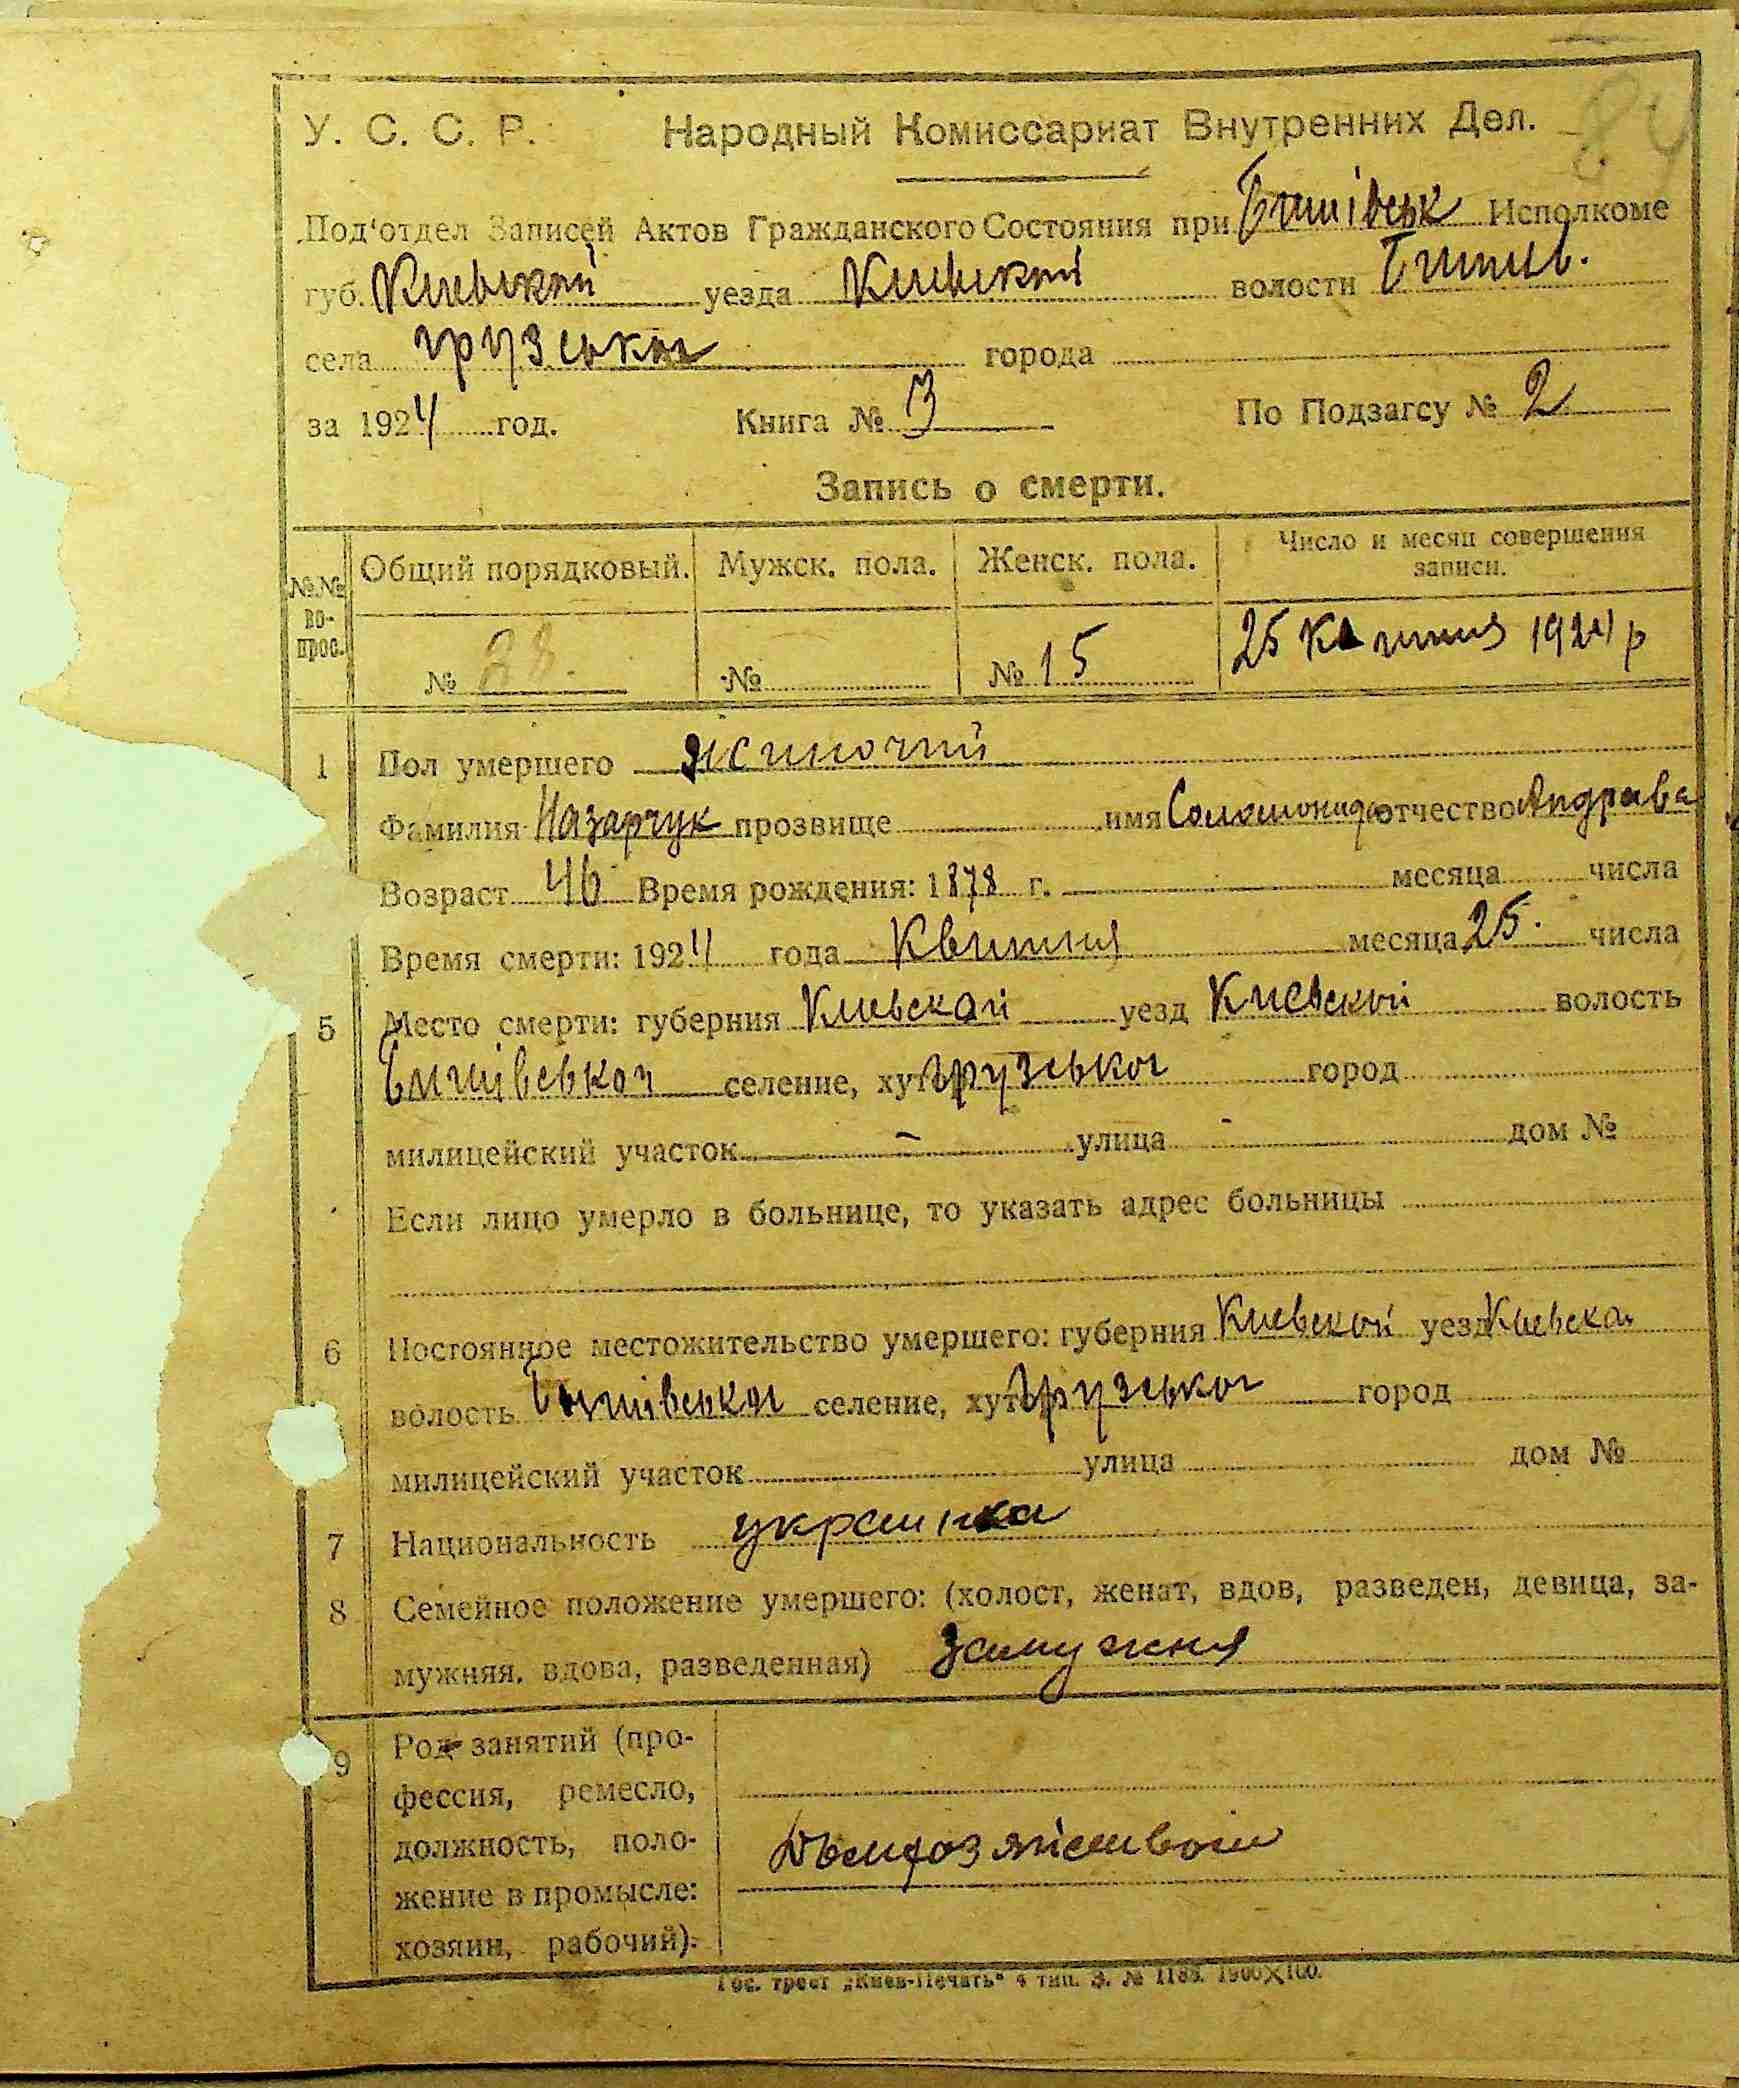 84
У. С. С. Р. Народный Комиссариат Внутренних Дел.
Под'отдел Записей Актов Гражданского Состояния при Бишівськ Исполкоме
губ. Киевской уезда Киевской волости Бишів.
села Грузської города
за 1924 год. Книга № 3 По Подзагсу № 2
Запись о смерти.
№№ вопрос. Общий порядковый. Мужск. пола. Женск. пола. Число и месяц совершения записи.
№ 28. № № 15 25 Квитня 1924 р
1 Пол умершего жиночий
Фамилия Назарчук прозвище имя Соломонида отчество Андрева
Возраст 46 Время рождения: 1878 г. месяца числа
Время смерти: 1924 года Квитня месяца 25. числа
5 Место смерти: губерния Киевской уезд Киевской волость
Бишівськой селение, хут. Грузської город
милицейский участок — улица - дом №
Если лицо умерло в больнице, то указать адрес больницы
6 Постоянное местожительство умершего: губерния Киевской уезд Киевской
волость Бишівської селение, хут. Грузської город
милицейский участок улица дом №
7 Национальность украинка
8 Семейное положение умершего: (холост, женат, вдов, разведен, девица, за-
мужняя, вдова, разведенная) замужня
9 Род занятий (про-
фессия, ремесло,
должность, поло-
жение в промысле:
хозяин, рабочий).
Гос. трест „Киев-Печать“ 4 тип. З. № 1188. 1900×100.